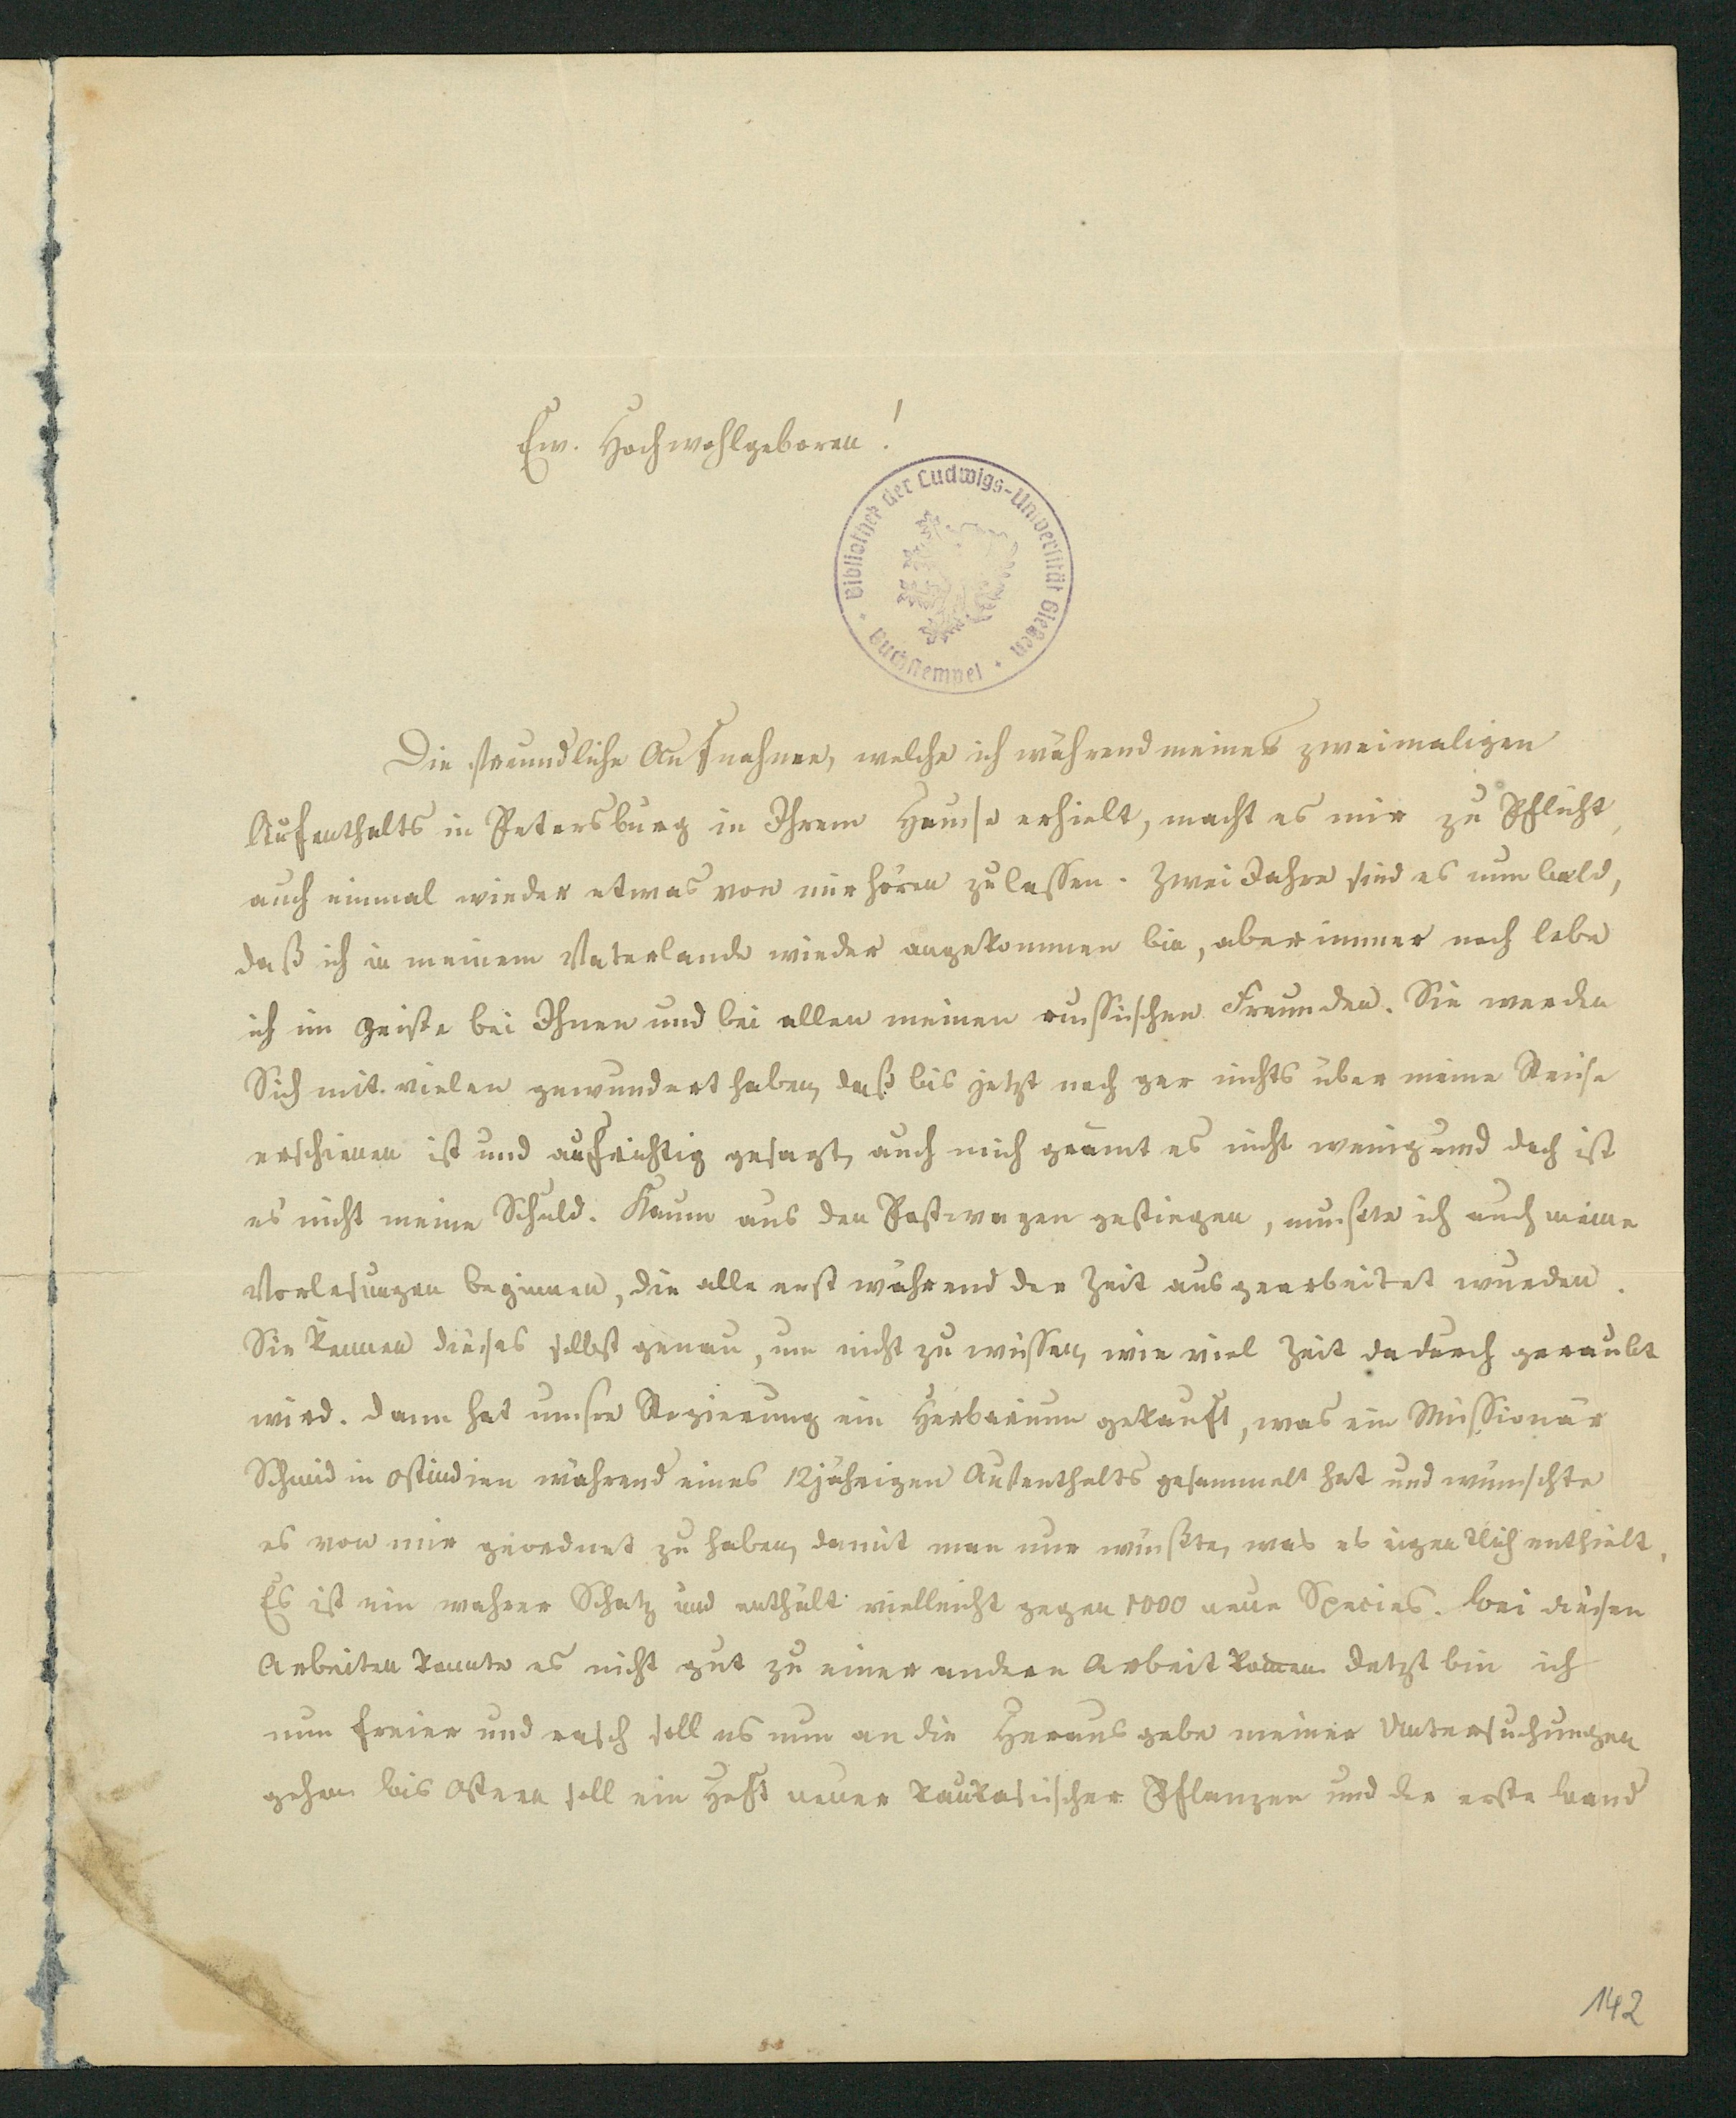 Ew. Hochwohlgeboren!
Bibliothek der Ludwigs-Universität Gießen
Buchstempel
Die freundliche Aufnahme, welche ich während meines zweimaligen
Aufenthalts in Petersburg in Ihrem Hause erhielt, macht es mir zu Pflicht,
auch einmal wieder etwas von mir hören zu lassen. Zwei Jahre sind es nun bald,
daß ich in meinem Vaterlande wieder angekommen bin, aber immer noch lebe
ich im Geiste bei Ihnen und bei allen meinen russischen Freunden. Sie werden
Sich mit vielen gewundert haben, daß bis jetzt noch gar nichts über meine Reise
erschienen ist und aufrichtig gesagt, auch mich grämt es nicht wenig und doch ist
es nicht meine Schuld. Kaum aus den Postwagen gestiegen, mußte ich auch meine
Vorlesungen beginnen, die alle erst während der Zeit ausgearbeitet wurden.
Sie kennen dieses selbst genau, um nicht zu wissen, wie viel Zeit dadurch geraubt
wird. Dann hat unsre Regierung ein Herbarium gekauft, was ein Missionär
Schmid in Ostindien während eines 12jährigen Aufenthalts gesammelt hat und wünschte
es von mir geordnet zu haben, damit man nur wüßte, was es eigentlich enthielt.
Es ist ein wahrer Schatz und enthält vielleicht gegen 1000 neue Species. Bei diesen
Arbeiten konnte es nicht gut zu einer andern Arbeit kommen. Jetzt bin ich
nun freier und rasch soll es nun an die Herausgabe meiner Untersuchungen
gehen bis Ostern soll ein Heft neuer kaukasischer Pflanzen und der erste Band
142